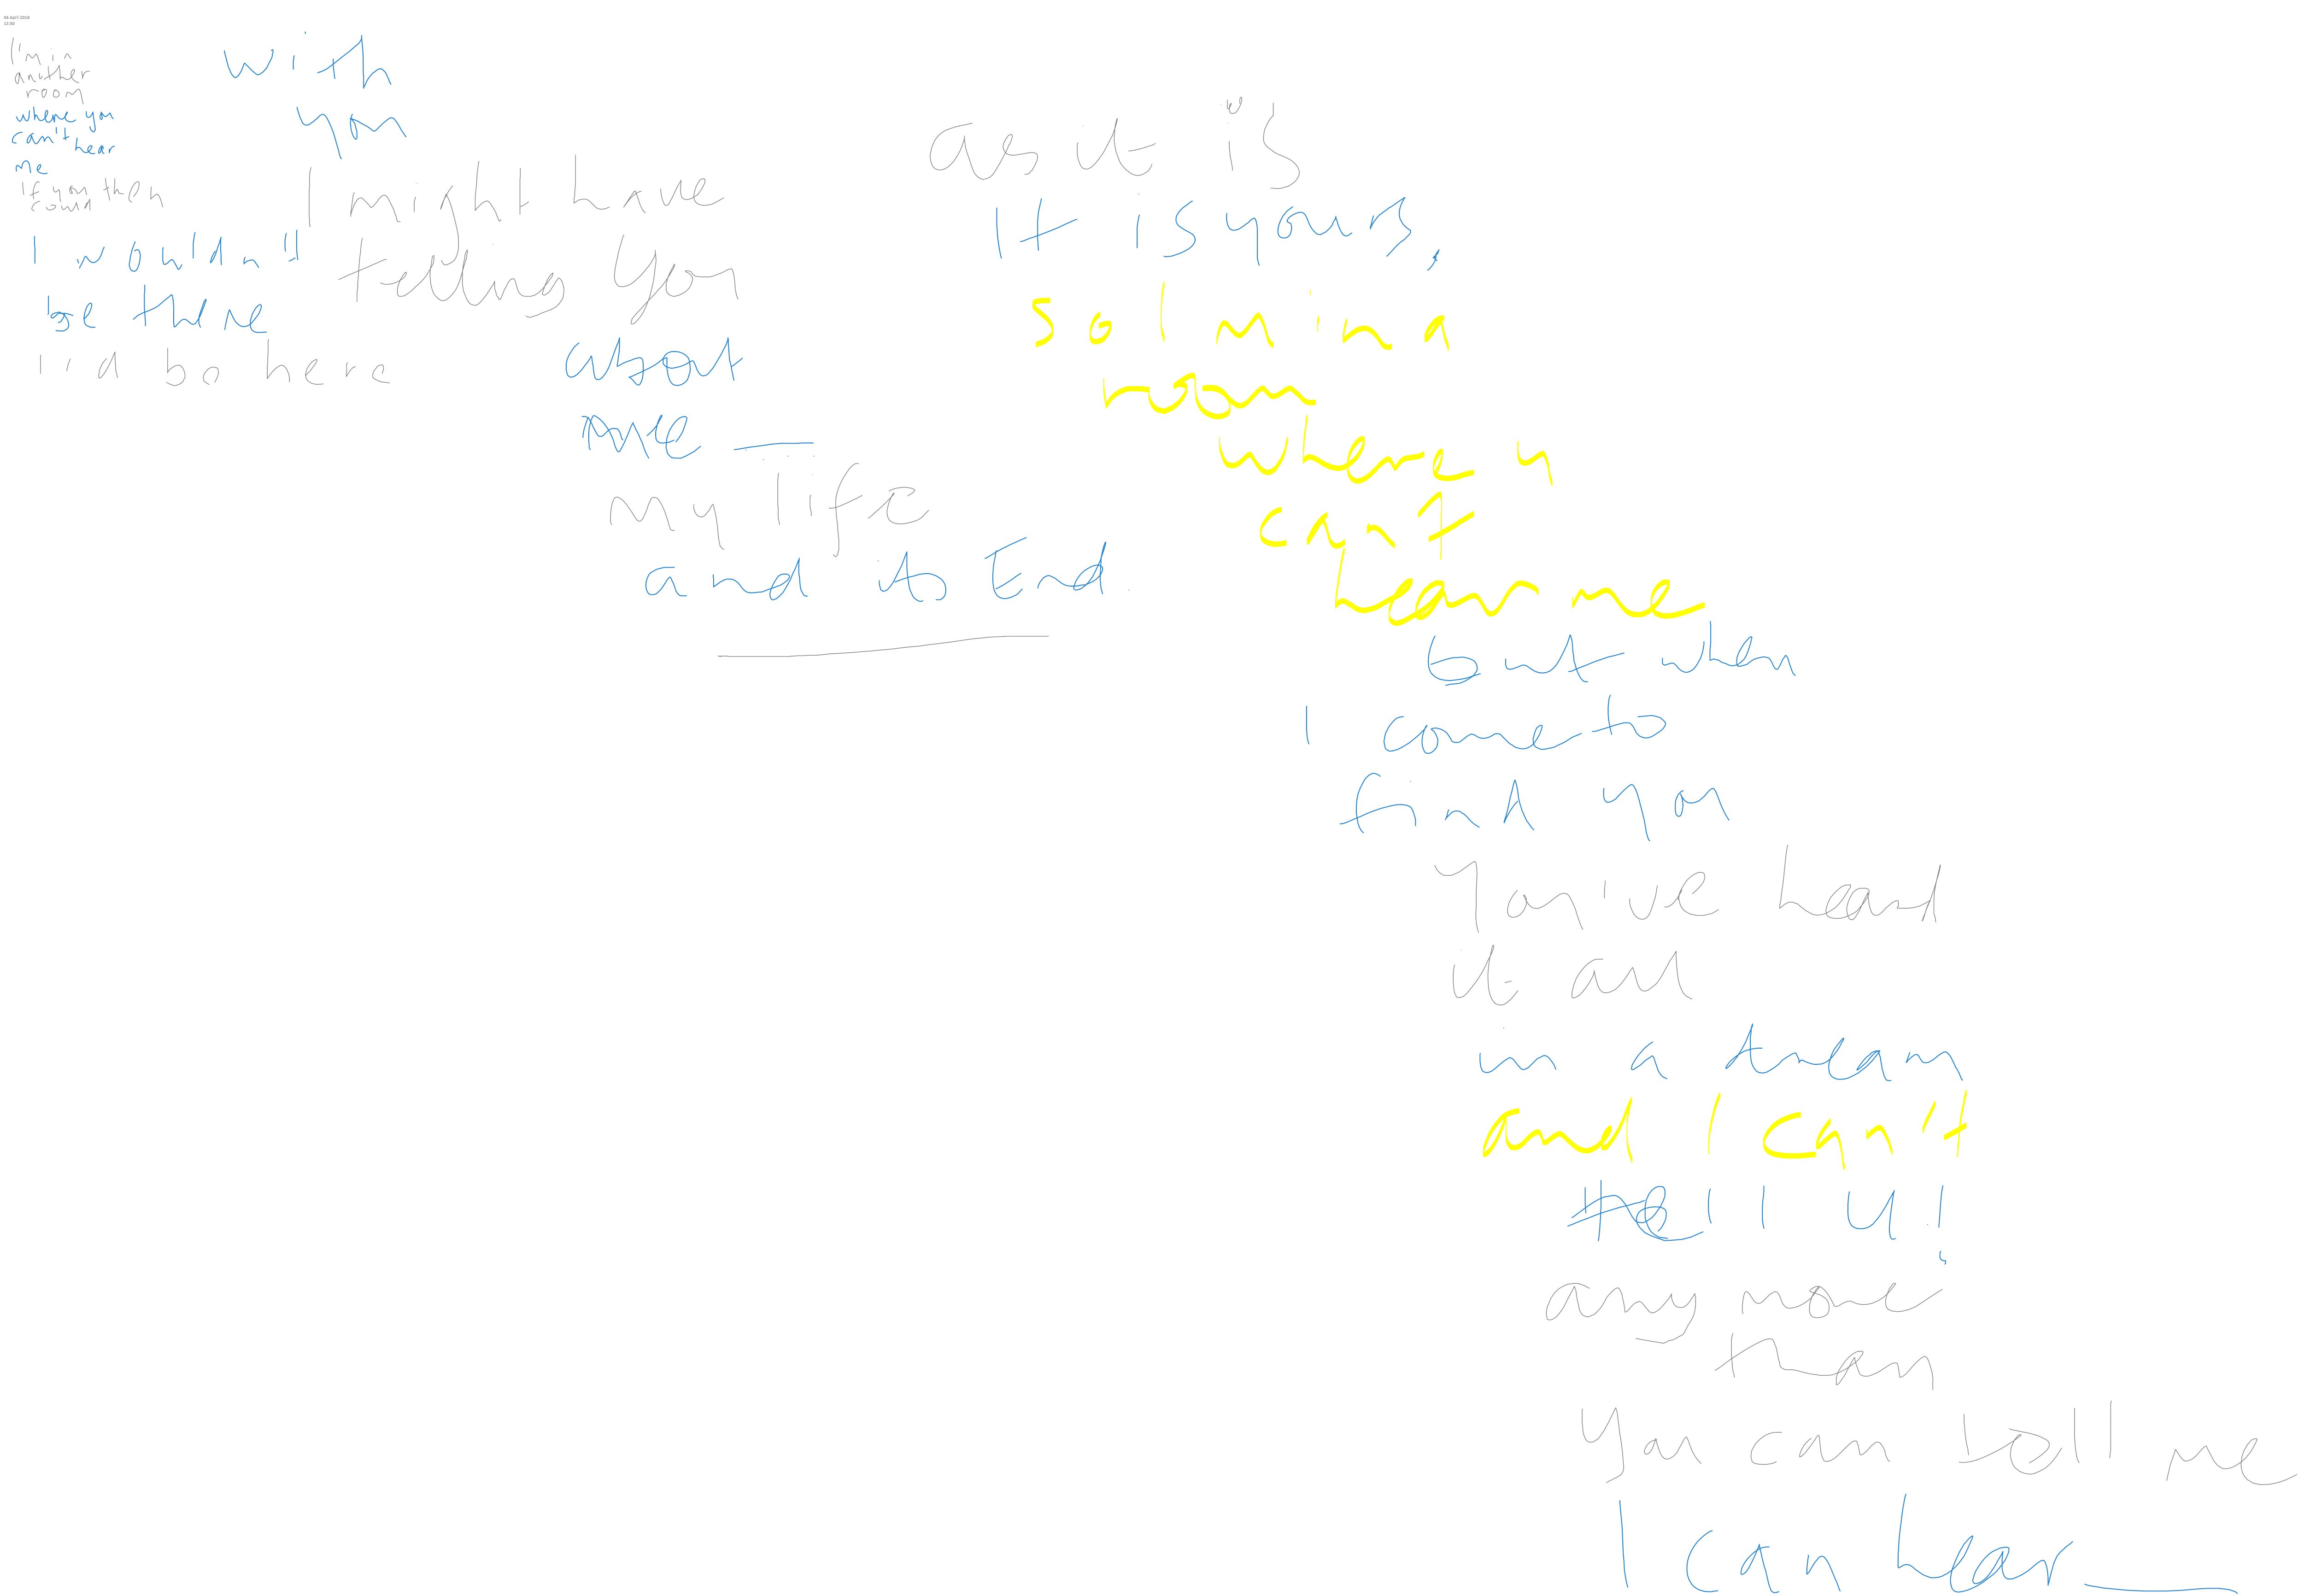 04 April 2018
13:50
I'm in
another
room
where you
can't hear
me
If you then
could
I wouldn't
be there
I'd be here
with
you
I might have
telling you
about
me __
my life
and its End.
as it is
It is yours,
So I'm in a
room
where y
can't
hear me
but when
I come to
find you
You've heard
it all
in a dream
and I can't
tell u!
any more
than
You can tell me
I can hear __